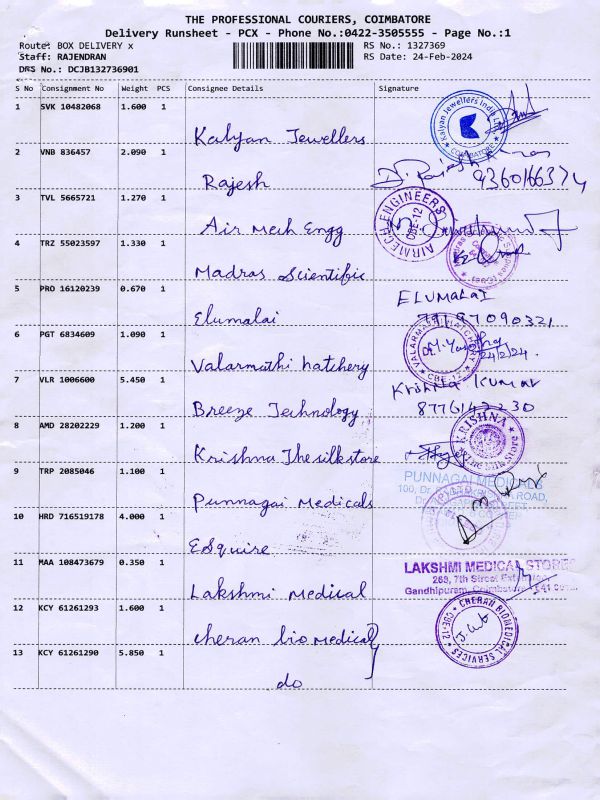 THE PROFESSIONAL COURIERS, COIMBATORE
Delivery Runsheet - PCX - Phone No.:0422-3505555 - Page No.:1
Route: BOX DELIVERY x RS No.: 1327369
Staff: RAJENDRAN RS Date: 24-Feb-2024
DRS No.: DCJB132736901
S No Consignment No Weight PCS Consignee Details Signature
1 SVK 10482068 1.600 1
Kalyan Jewellers
Kalyan Jewellers India
COIMBATORE
2 VNB 836457 2.090 1
Rajesh
9360166374
3 TVL 5665721 1.270 1
Air Mech Engg
AIRMECH ENGINEERS
CBE-12
4 TRZ 55023597 1.330 1
Madras Scientific
5 PRO 16120239 0.670 1
Elumalai
ELUMALAI
6 PGT 6834609 1.090 1
Valarmathi hatchery
VALARMATHI HATCHERY
CBE-12
24/2/24.
7 VLR 1006600 5.450 1
Breeze Technology
Krishna Kumar
8 AMD 28202229 1.200 1
Krishna The silkstore
KRISHNA
The Silk Store
9 TRP 2085046 1.100 1
Punnagai Medicals
PUNNAGAI MEDICALS
100, Dr. ROAD,
10 HRD 716519178 4.000 1
ESquire
11 MAA 108473679 0.350 1
Lakshmi Medical
LAKSHMI MEDICAL STORES
268, 7th Street
Gandhipuram, Coimbatore
12 KCY 61261293 1.600 1
cheran bio Medical
CHERAN BIOMEDICAL SERVICES
CBE-12
13 KCY 61261290 5.850 1
do